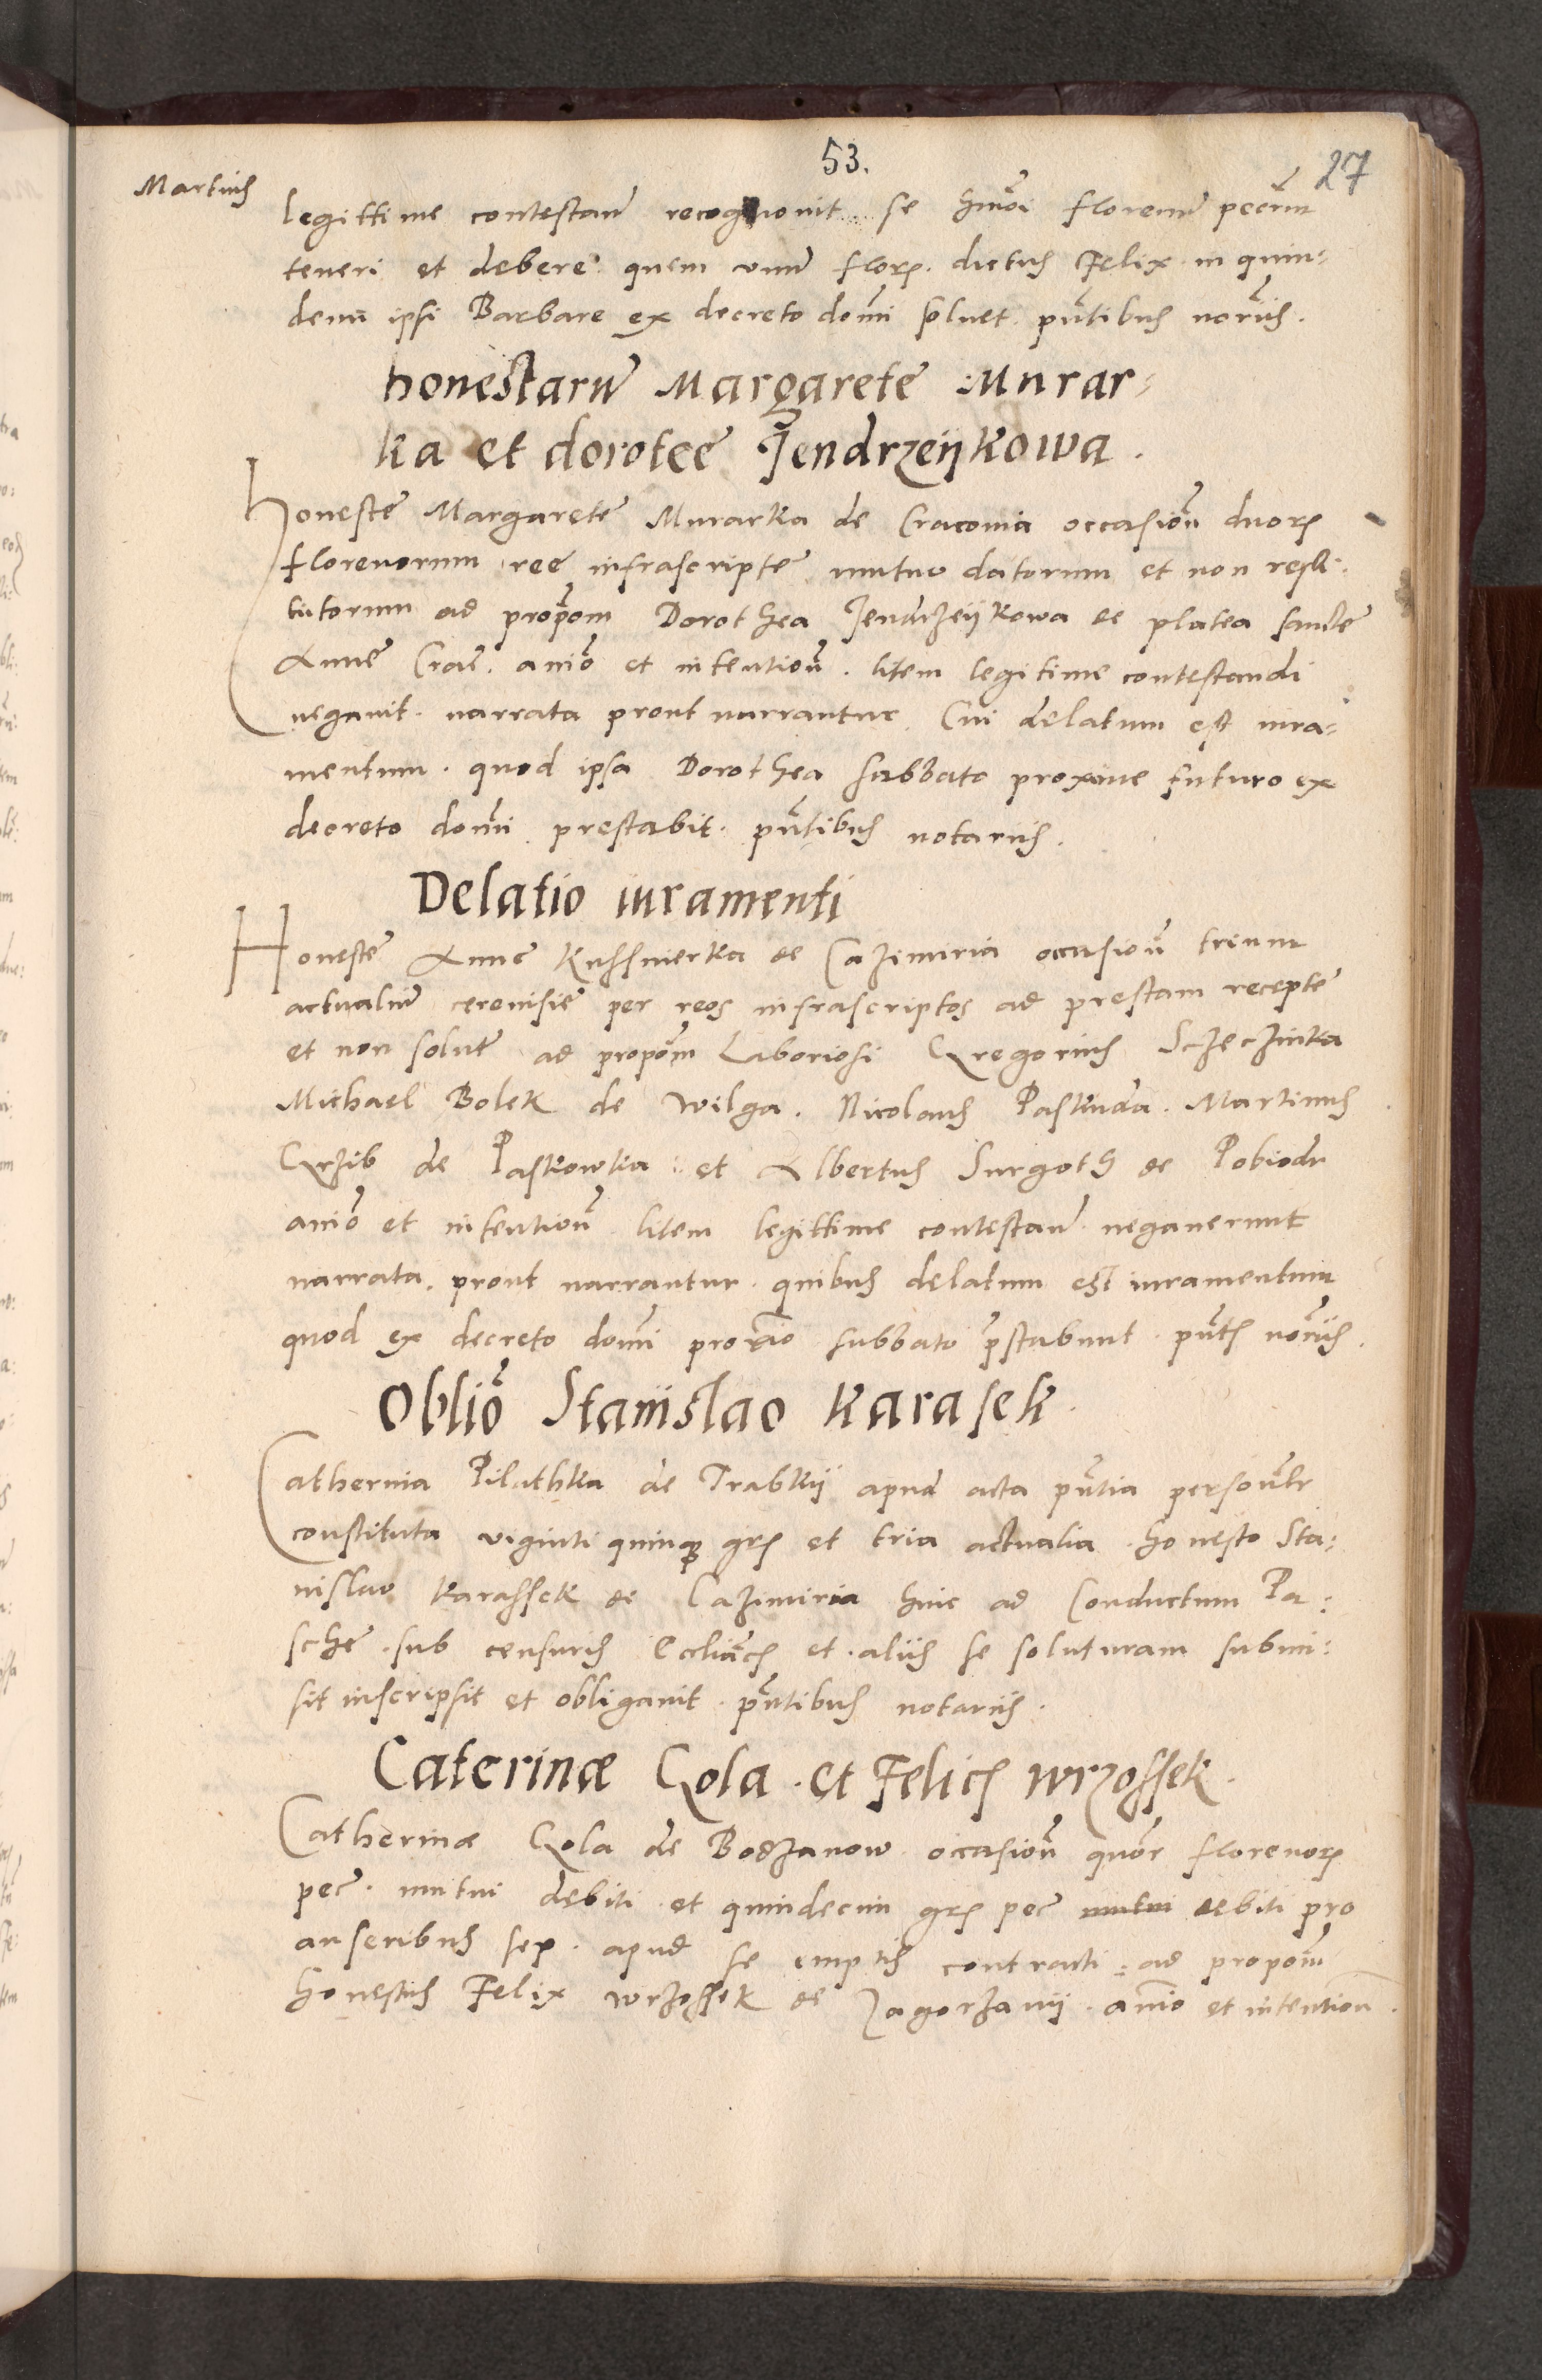 53.
27
Martius
legittime contestan̄ recognouit se hm̄oi florenū peccūm
teneri et debere quem vnū flor. dictus Felix in quin:
dena ipsi Barbare ex decreto dom̄i soluet. pn̄tibus nor̄iis.
honestarū Margarete Murar:
ka et dorotee Jendrzeijkowa.
Honeste Margarete Murarka de Cracouia occasion̄ duor.
florenorum ree infrascripte mutuo datorum et non resti:
tutorum ad propom̄ Dorothea Jendrzeijkowa de platea sancte
Anne Crac. anīo et intention̄. litem legitime contestandi
negauit. narrata prout narrantur. Cui delatum est iura:
mentum. quod ipsa Dorothea sabbato proxime futuro ex
decreto dom̄i prestabit. pn̄tibus notariis.
Delatio iuramenti
Honeste Anne Kussnierka de Cazimiria occasion̄ trium
actualiū cereuisie per reos infrascriptos ad prestam recepte
et non solute ad propom̄ Laboriosi Gregorius Sczeczinka
Michael Bolek de Wilga. Nicolaus Paskuda. Martinus
Grzib de Paskowka. et Albertus Surgoth de Pobiodr
anīo et intention̄ litem legittime contestan̄ negauerunt
narrata. prout narrantur. quibus delatum est iuramentum
quod ex decreto dom̄i proxīo sabbato p̄stabunt. pn̄t. nor̄iis.
Oblīo Stanislao Karasek.
Catherina Pilathka de Trabkij apud acta pn̄tia personl̄r
constituta viginti quinq gr. et tria actualia. honesto Sta:
nislao Karassek de Cazimiria hinc ad Conductum Pa:
sche. sub censuris Eccliācis et. aliis se soluturam submi:
sit inscripsit et obligauit. pn̄tibus notariis.
Caterinæ Gola. et Felicis Wrzossek.
Catherinæ Gola de Bodzanow. occasion̄ quōr florenor.
pec̄. mutui debiti. et quindecim gr. pec̄ mutui debiti pro
anseribus sex. apud se emptis contracti: ad propom̄
honestus Felix Wrzossek de Zagorzanij. anīo et intention̄.